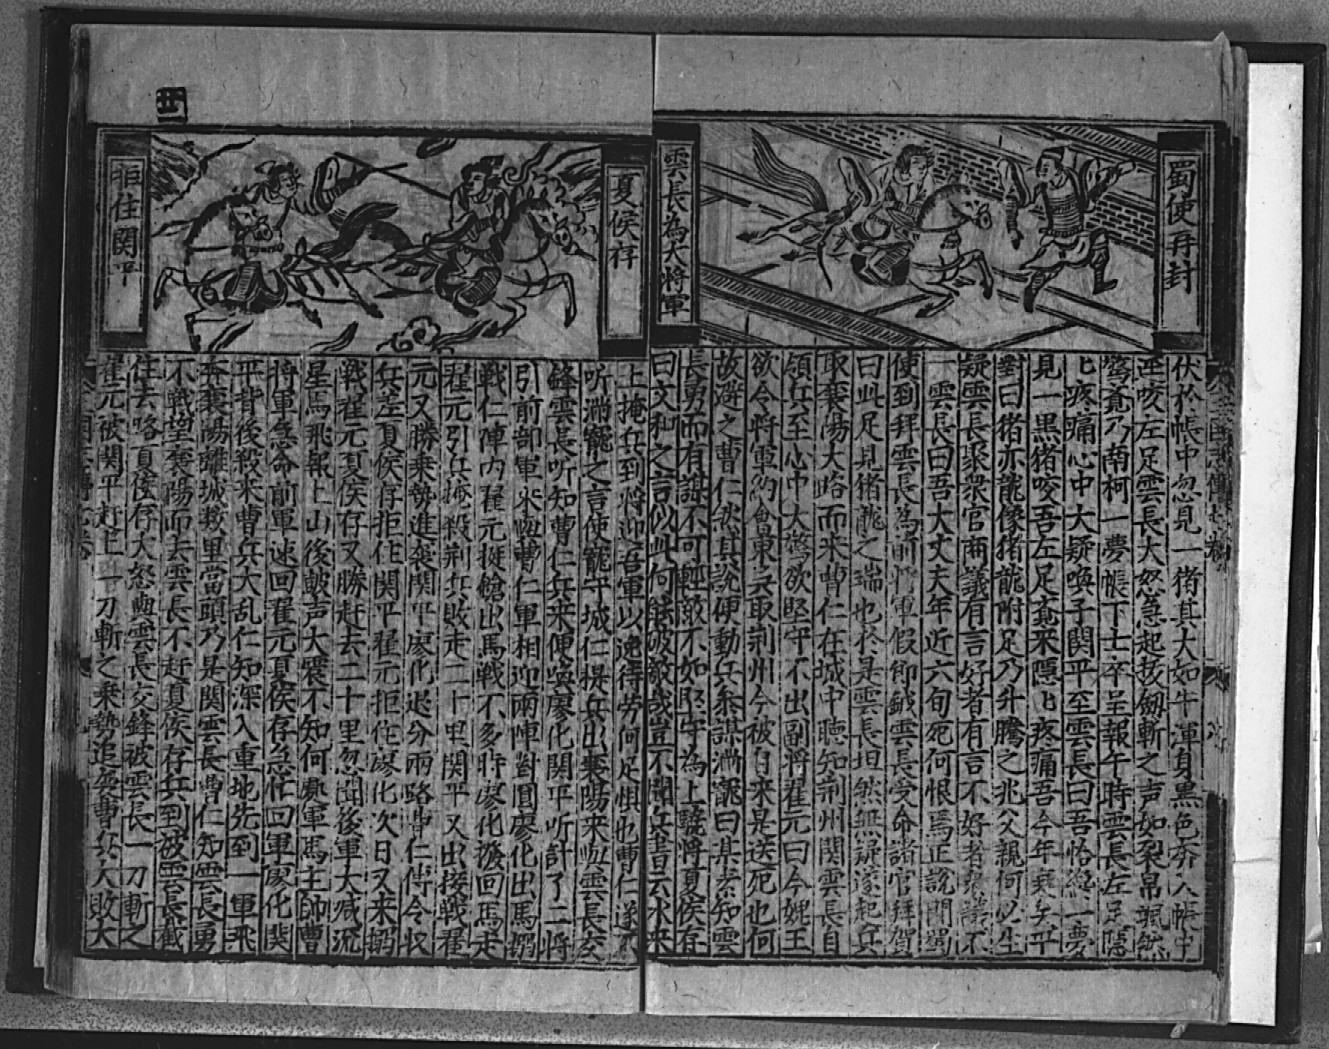 蜀使再封
雲長為大將軍
伏於帳中忽見一猪其大如牛渾身黒色奔入帳中
逕咬左足雲長大怒急起拔劔斬之声如裂帛颯然
驚覺乃南柯一夢帳下士卒呈報午時雲長左足隱
匕疼痛心中大疑喚子関平至雲長曰吾恰縂一夢
見一黒猪咬吾左足覺来隱匕疼痛吾今年衰矣平
對曰猪亦龍像猪龍附足乃升騰之兆父親何必生
疑雲長聚衆官商議有言好者有言不好者衆議不
一雲長曰吾大丈夫年近六旬死何恨焉正說間蜀
使到拜雲長為前將軍假節鉞雲長受命諸官拜賀
曰此足見猪龍之瑞也於是雲長坦然無疑遂起兵
取襄陽大路而来曹仁在城中聴知荆州関雲長自
領兵至心中大驚欲堅守不出副将翟元曰今魏王
欲令将軍約會東吳取荆州今被自来是送死也何
故避之曹仁欲其說便動兵叅謀滿寵曰某素知雲
長勇而有謀不可軽敵不如堅守為上驍将夏侯存
曰文和之言似此何能破敵哉豈不聞兵書云水来
夏侯存
拒住関平
土掩兵到将迎吾軍以逸待劳何足惧也曹仁遂不
听滿寵之言使寵守城仁提兵出襄陽来迎雲長交
鋒雲長听知曹仁兵来便喚廖化関平听計了二将
引前部軍米與曹仁軍相迎兩陣對圓廖化出馬搦
戰仁陣内翟元挺鎗出馬戰不多時廖化撥回馬走
翟元引兵掩殺荆兵敗走二十里関平又出接戰翟
元又勝乗勢進襲関平廖化退分兩路曹仁傳令収
兵差夏侯存拒住関平翟元拒住廖化次日又来搦
戰翟元夏侯存又勝赶去二十里忽聞後軍大喊流
星馬飛報上山後皷声大震不知何處軍馬主帥曹
将軍急命前軍速回翟元夏侯存急忙回軍廖化関
平背後殺来曹兵大乱仁知深入重地先到一軍飛
奔襄陽離城数里當頭乃是関雲長曹仁知雲長勇
不敢望襄陽而去雲長不赶夏侯存兵到被雲長截
住去路夏侯存大怒與雲長交鋒被雲長一刀斬之
翟元被関平赶上一刀斬之乗勢追殺曹兵大敗大